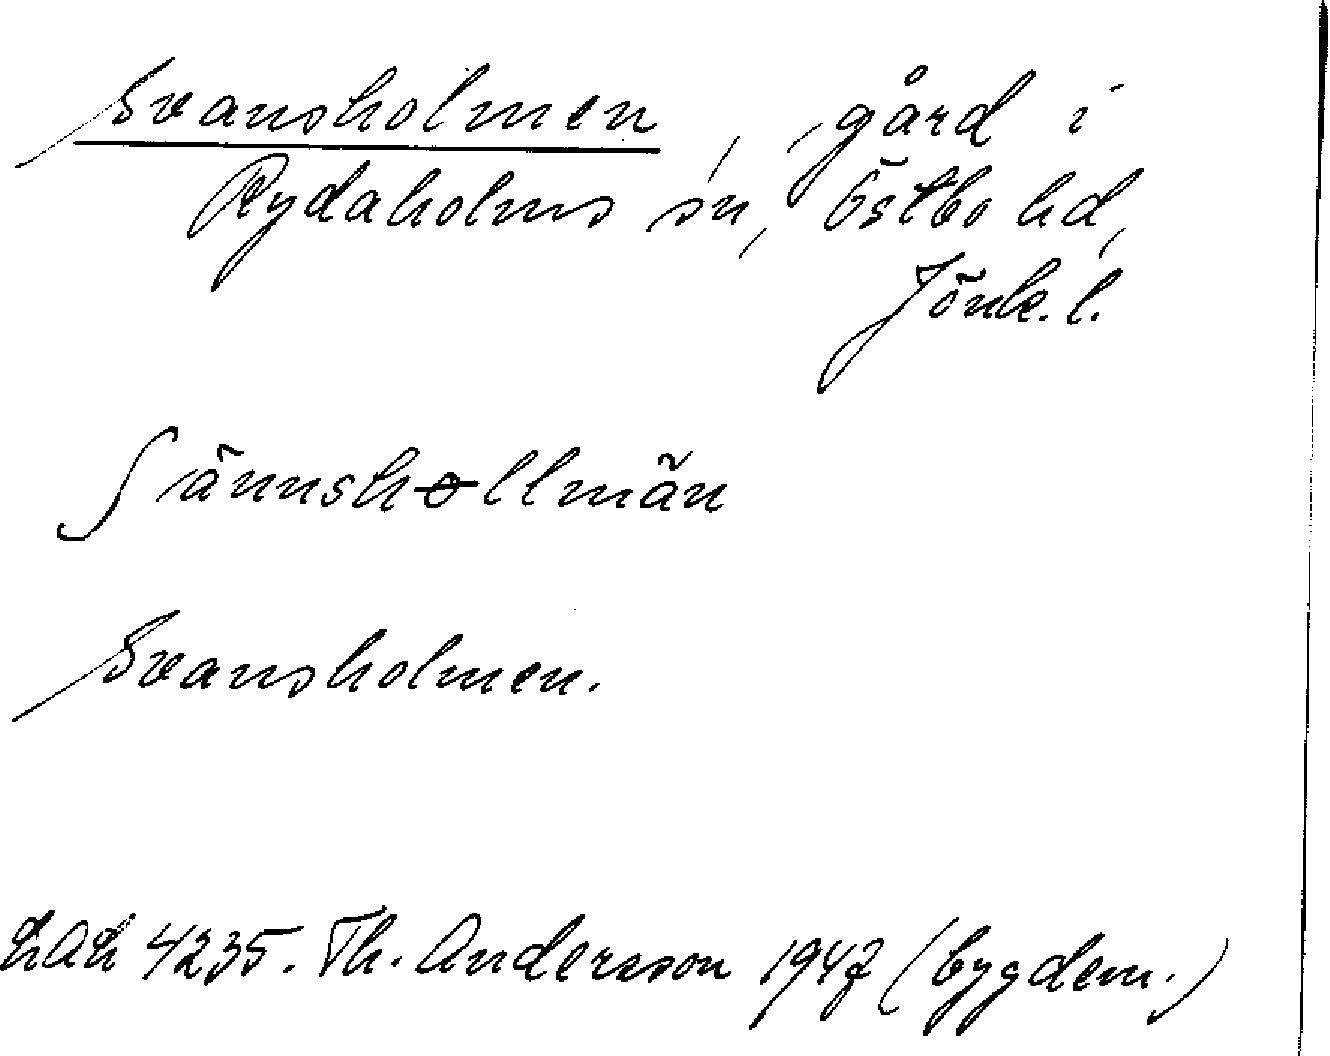 Svansholmen, gård i
Rydaholms sn, Östbo hd,
Jönk. l.
ʃännshɵllmän
Svansholmen.
LAL 4235. Th. Andersson 1947 (bygdem.)